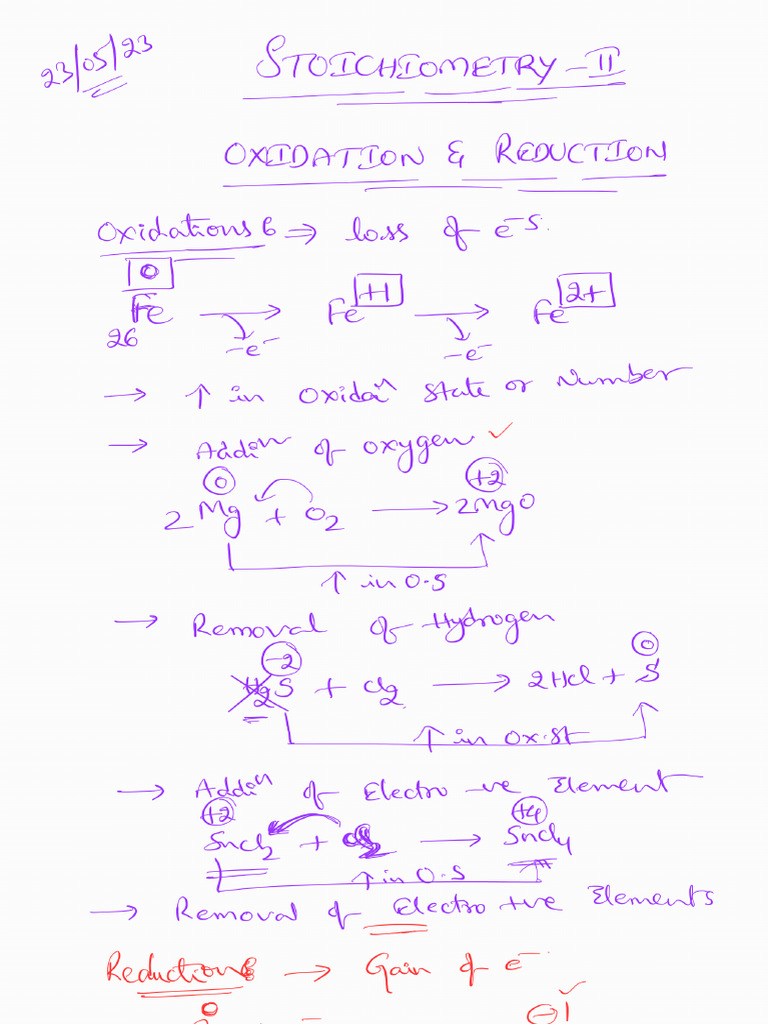 23/05/23
STOICHIOMETRY - II
OXIDATION & REDUCTION
Oxidations → loss of e⁻s.
0
Fe → Fe +1 → Fe 2+
26 -e⁻ -e⁻
→ ↑ in Oxidaⁿ State or Number
→ Addiⁿ of oxygen ✓
0 +2
2Mg + O2 → 2MgO
↑ in O.S
→ Removal of Hydrogen
-2 0
H2S + Cl2 → 2HCl + S
↑ in Ox.St
→ Addiⁿ of Electro -ve Element
+2 +4
SnCl2 + Cl2 → SnCl4
↑ in O.S
→ Removal of Electro +ve Elements
Reduction → Gain of e⁻
0 -1